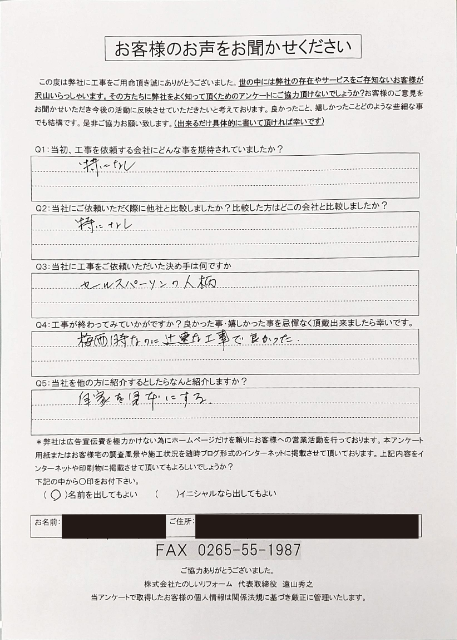 お客様のお声をお聞かせください
この度は弊社に工事をご用命頂き誠にありがとうございました。世の中には弊社の存在やサービスをご存知ないお客様が
沢山いらっしゃいます。その方たちに弊社をよく知って頂くためのアンケートにご協力頂けないでしょうか?お客様のご意見を
お聞かせいただき今後の活動に反映させていただきたいと考えております。良かったこと、嬉しかったことどのような些細な事
でも結構です。是非ご協力お願い致します。(出来るだけ具体的に書いて頂ければ幸いです)
Q1:当初、工事を依頼する会社にどんな事を期待されていましたか?
特になし
Q2:当社にご依頼いただく際に他社と比較しましたか?比較した方はどこの会社と比較しましたか?
特になし
Q3:当社に工事をご依頼いただいた決め手は何ですか
セールスパーソンの人柄
Q4:工事が終わってみていかがですか?良かった事・嬉しかった事を忌憚なく頂戴出来ましたら幸いです。
梅雨時なのに迅速な工事で良かった。
Q5:当社を他の方に紹介するとしたらなんと紹介しますか?
自家を見本にする。
*弊社は広告宣伝費を極力かけない為にホームページだけを頼りにお客様への営業活動を行っております。本アンケート
用紙またはお客様宅の調査風景や施工状況を随時ブログ形式のインターネットに掲載させて頂いております。上記内容をイ
ンターネットや印刷物に掲載させて頂いてもよろしいでしょうか?
下記の中から〇印をお付下さい。
(〇)名前を出してもよい ( )イニシャルなら出してもよい
お名前: ご住所:
FAX 0265-55-1987
ご協力ありがとうございました。
株式会社たのしいリフォーム 代表取締役 遠山秀之
当アンケートで取得したお客様の個人情報は関係法規に基づき厳正に管理いたします。